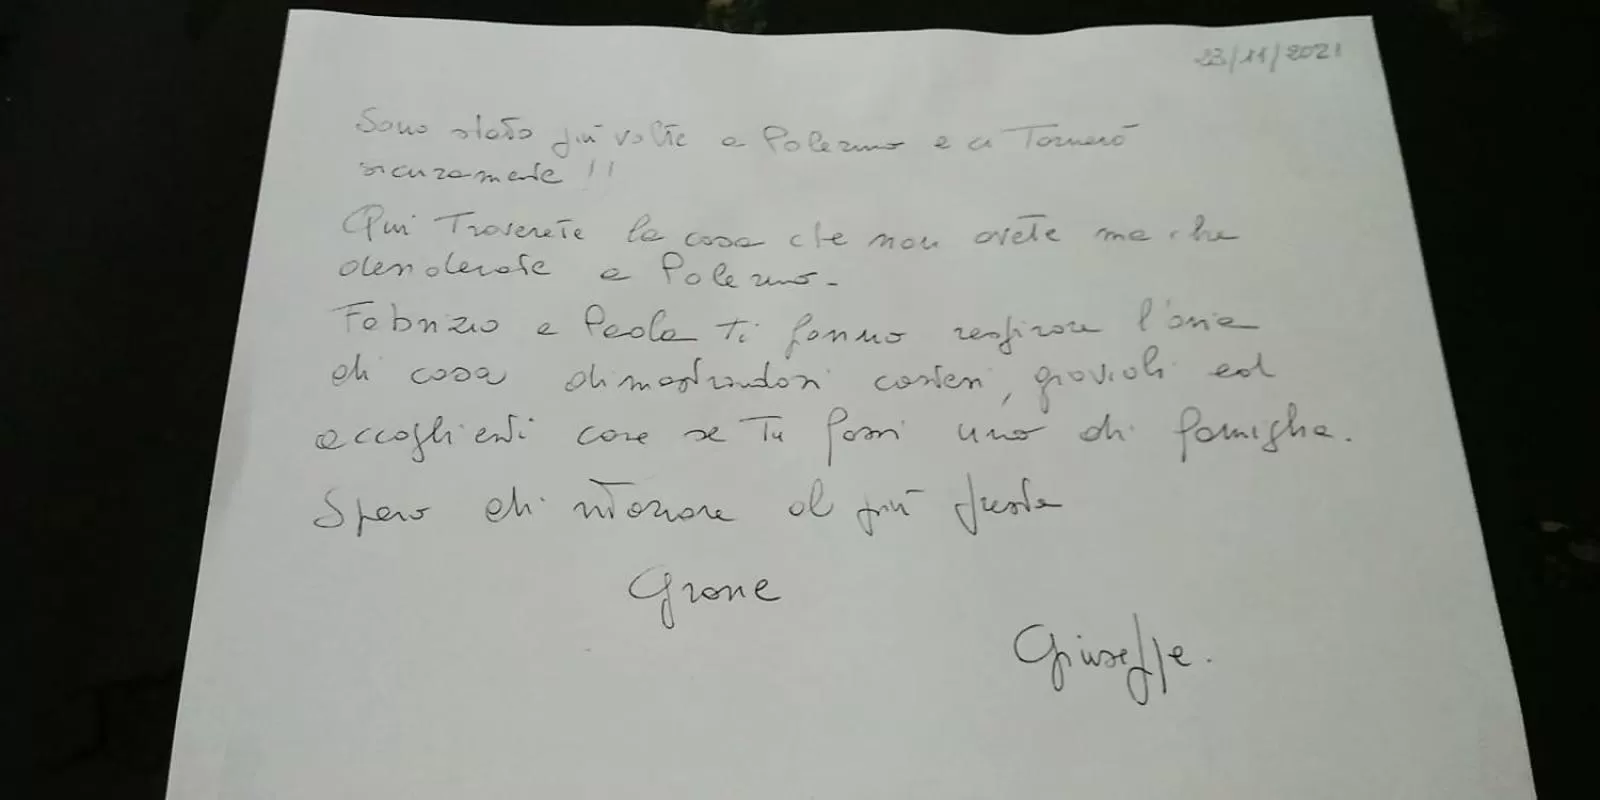 23/11/2021
Sono stato più volte a Palermo e ci Tornerò
sicuramente !!
Qui Troverete la casa che non avete ma che
desiderate a Palermo.
Fabrizio e Paola Ti fanno respirare l'aria
di casa dimostrandosi cortesi, giovioli ed
accoglienti come se Tu fossi uno di famiglia.
Spero di ritornare al più presto
Grazie
Giuseppe.